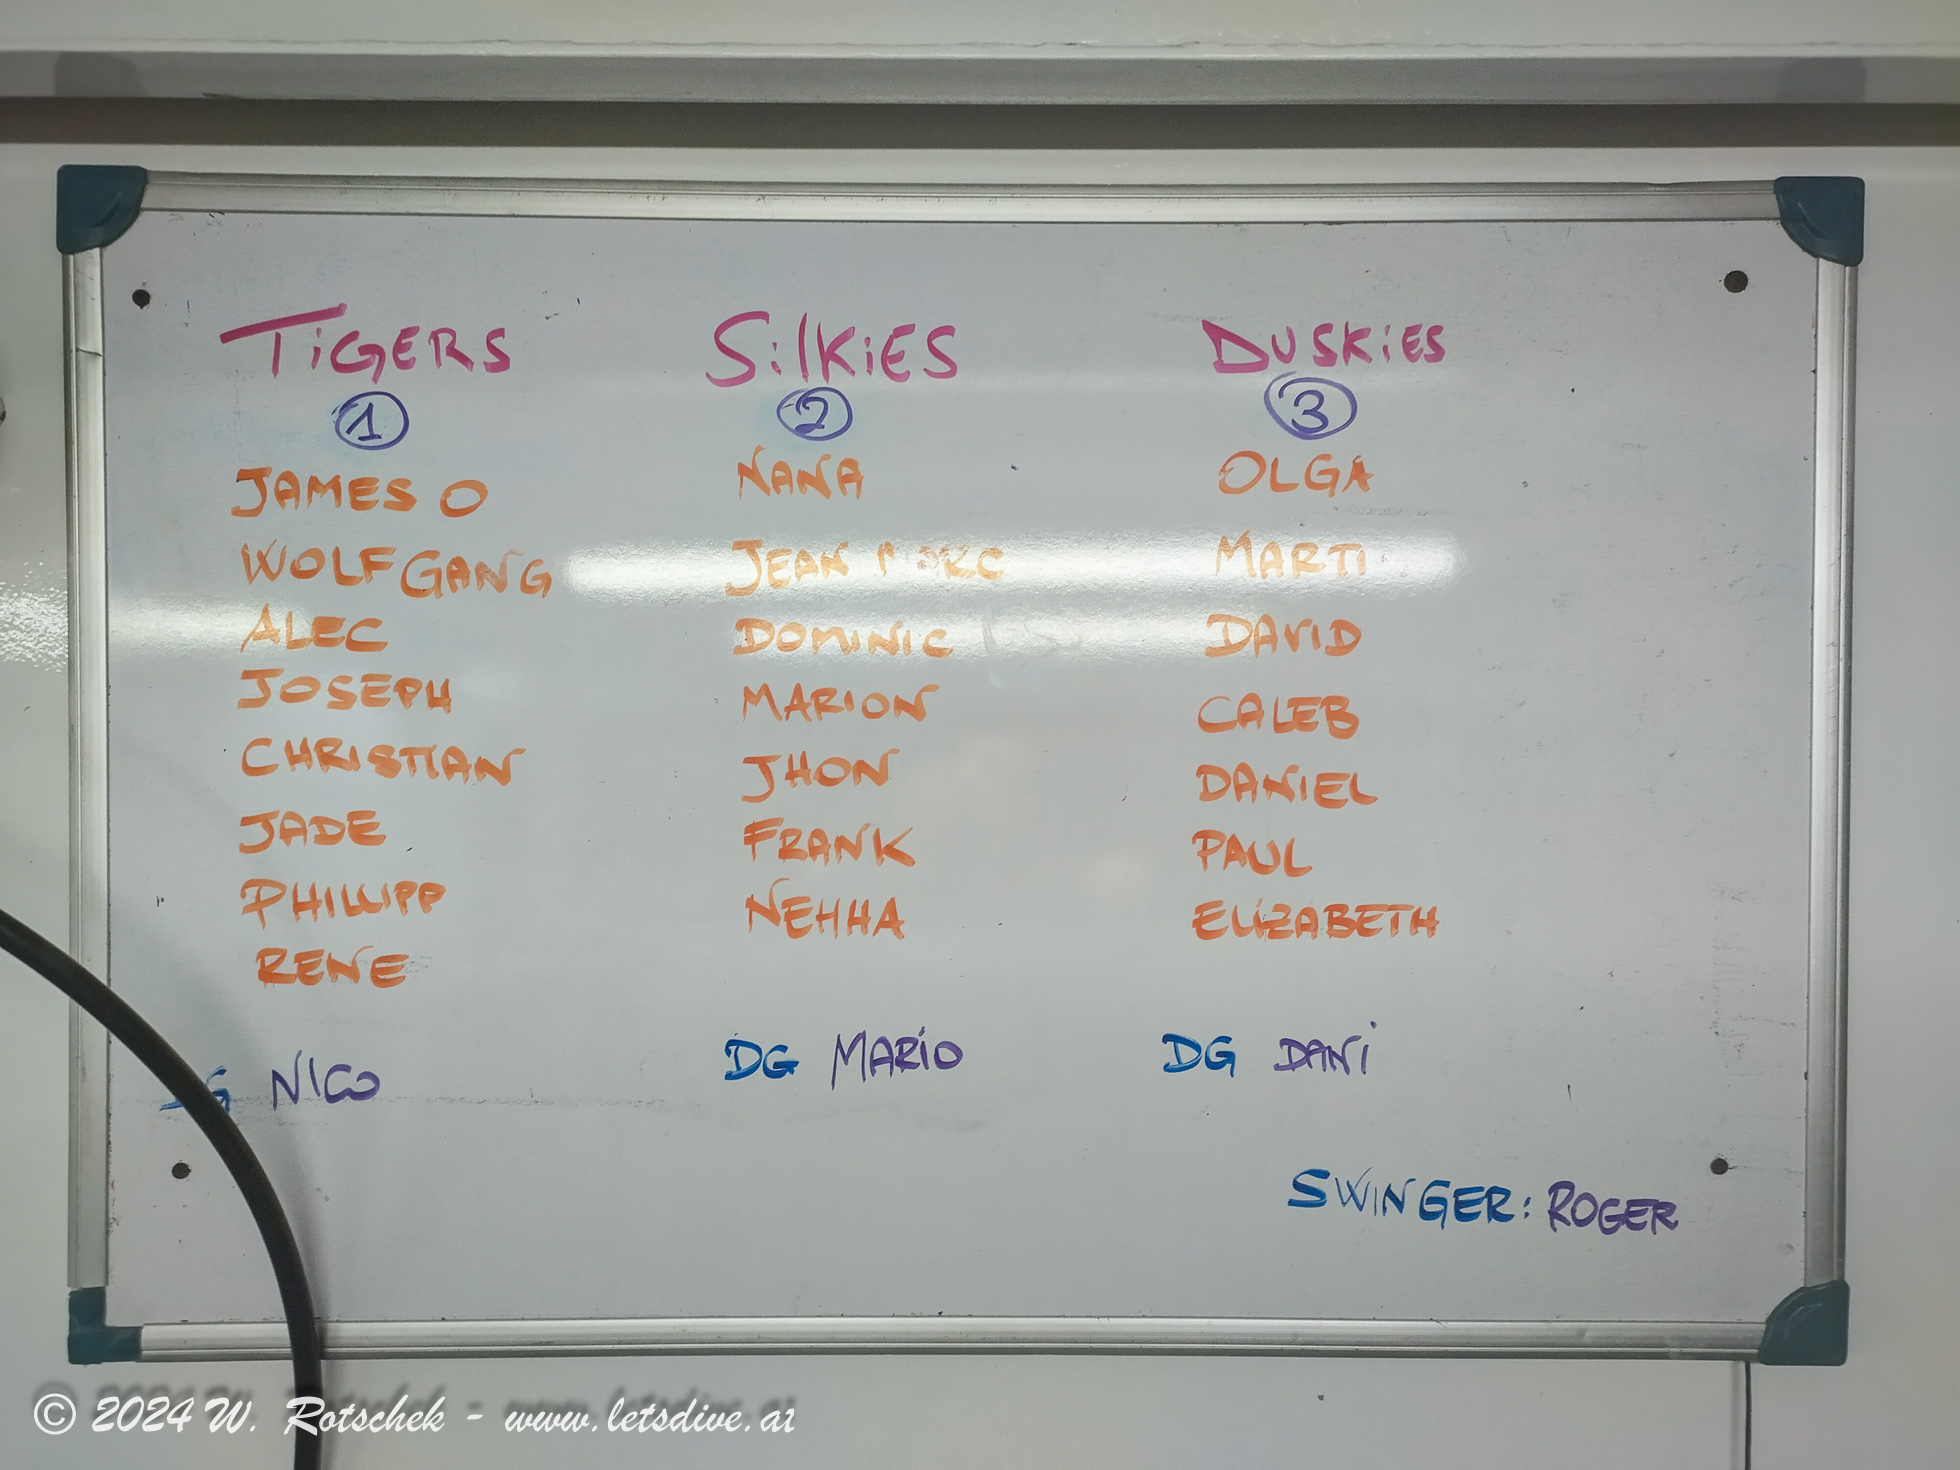 TiGERS
1
JAMES O
WOLFGANG
ALEC
JOSEPH
CHRISTIAN
JADE
PHILLIPP
RENE
DG NICO
SilKiES
2
NANA
JEAN MARC
DOMINIC
MARION
JHON
FRANK
NEHHA
DG MARIO
DUSKiES
3
OLGA
MARTI
DAVID
CALEB
DANIEL
PAUL
ELIZABETH
DG DANi
SWINGER: ROGER
© 2024 W. Rotschek - www.letsdive.at